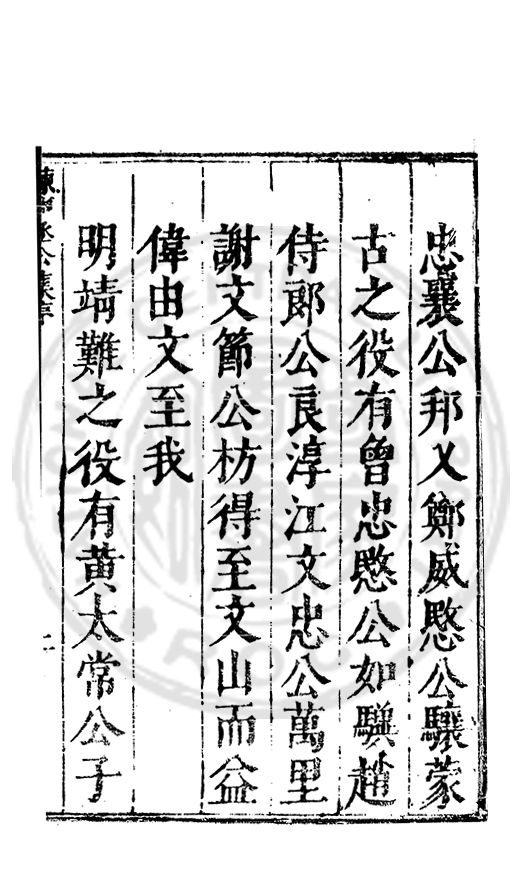 忠襄公邦乂鄭威愍公驤蒙
古之役有曾忠愍公如驥趙
侍郎公良淳江文忠公萬里
謝文節公枋得至文山而益
偉由文至我
明靖難之役有黄太常公子